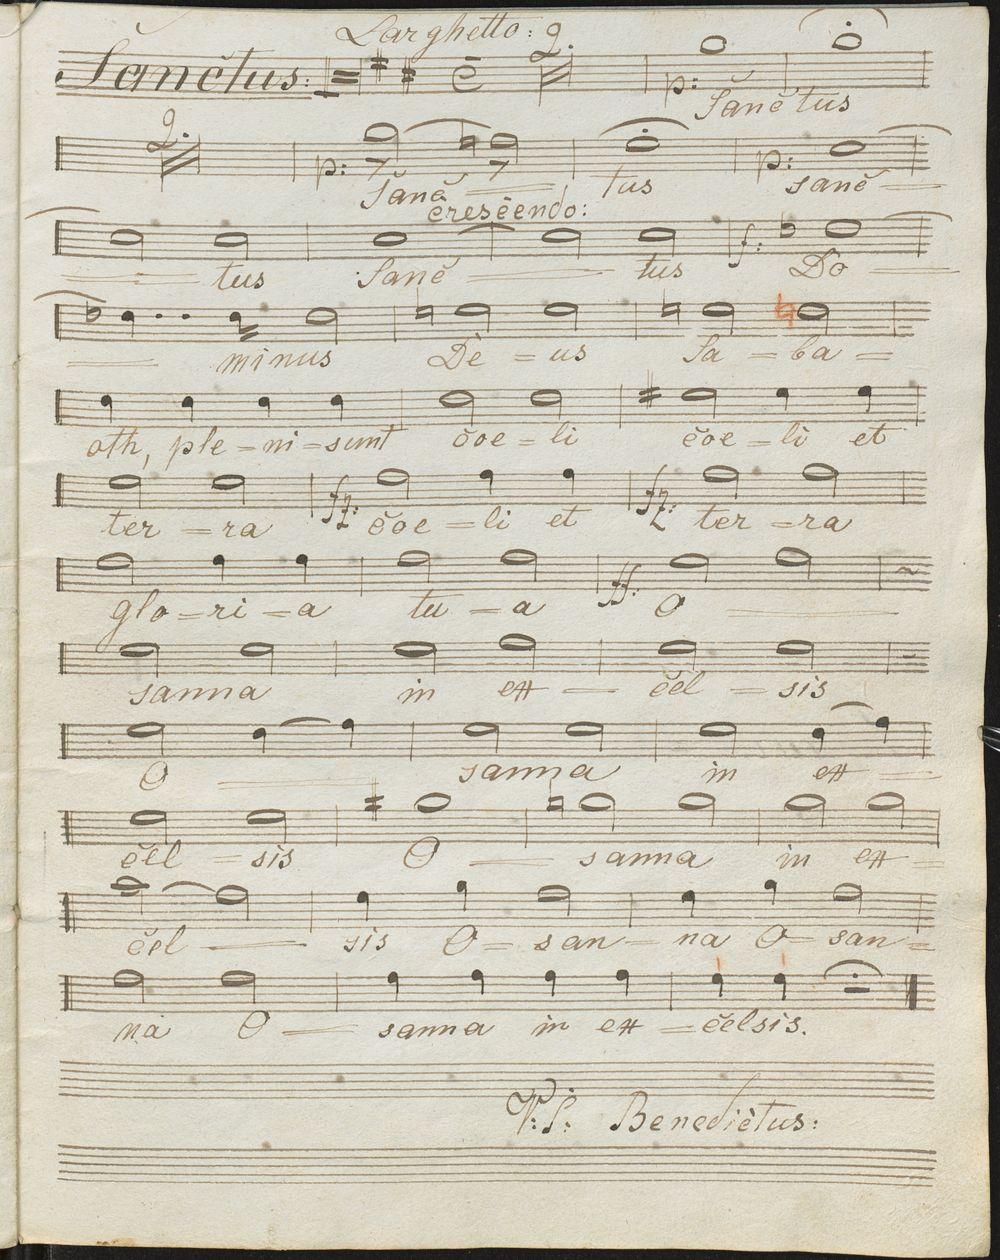 Larghetto: 2.
Sanctus: p: Sanctus
2. p: Sanc = tus p: sanc =
crescendo:
= tus Sanc = tus f: Do =
= minus De = us Sa = ba =
oth, ple = ni = sunt coe = li coe = li et
ter = ra fz: coe = li et fz: ter = ra
glo = ri = a tu = a ff: O
sanna in ex = cel = sis
O = sanna in ex =
cel = sis O = sanna in ex =
cel = sis O = san = na O = san =
na O = sanna in ex = celsis.
V: S: Benedictus: